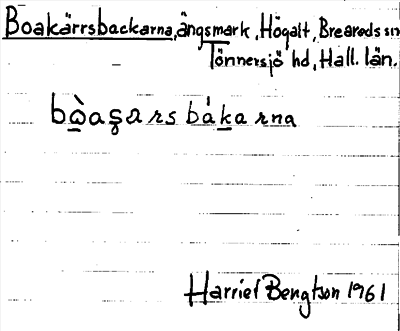 Boakärrsbackarna, ängsmark, Högalt, Breareds sn
Tönnersjö hd, Hall. län.
bò̲aʂars bákarna
Harriet Bengtson 1961